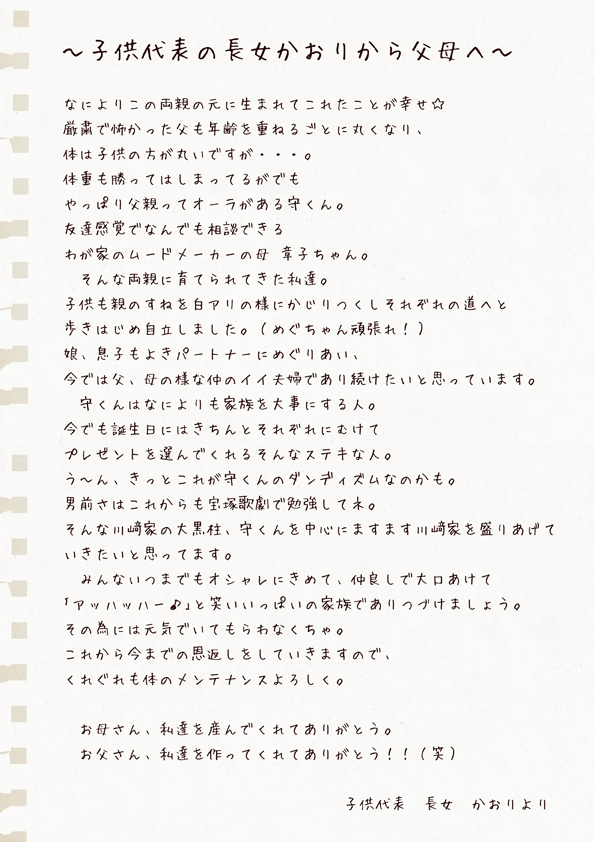 ～子供代表の長女かおりから父母へ～
なによりこの両親の元に生まれてこれたことが幸せ☆
厳粛で怖かった父も年齢を重ねるごとに丸くなり、
体は子供の方が丸いですが・・・。
体重も勝ってはしまってるがでも
やっぱり父親ってオーラがある守くん。
友達感覚でなんでも相談できる
わが家のムードメーカーの母 章子ちゃん。
そんな両親に育てられてきた私達。
子供も親のすねを白アリの様にかじりつくしそれぞれの道へと
歩きはじめ自立しました。（めぐちゃん頑張れ！）
娘、息子もよきパートナーにめぐりあい、
今では父、母の様な仲のイイ夫婦であり続けたいと思っています。
守くんはなによりも家族を大事にする人。
今でも誕生日にはきちんとそれぞれにむけて
プレゼントを選んでくれるそんなステキな人。
う～ん、きっとこれが守くんのダンディズムなのかも。
男前さはこれからも宝塚歌劇で勉強してネ。
そんな川﨑家の大黒柱、守くんを中心にますます川﨑家を盛りあげて
いきたいと思ってます。
みんないつまでもオシャレにきめて、仲良しで大口あけて
「アッハッハー♪」と笑いいっぱいの家族でありつづけましょう。
その為には元気でいてもらわなくちゃ。
これから今までの恩返しをしていきますので、
くれぐれも体のメンテナンスよろしく。
お母さん、私達を産んでくれてありがとう。
お父さん、私達を作ってくれてありがとう！！（笑）
子供代表　長女　かおりより